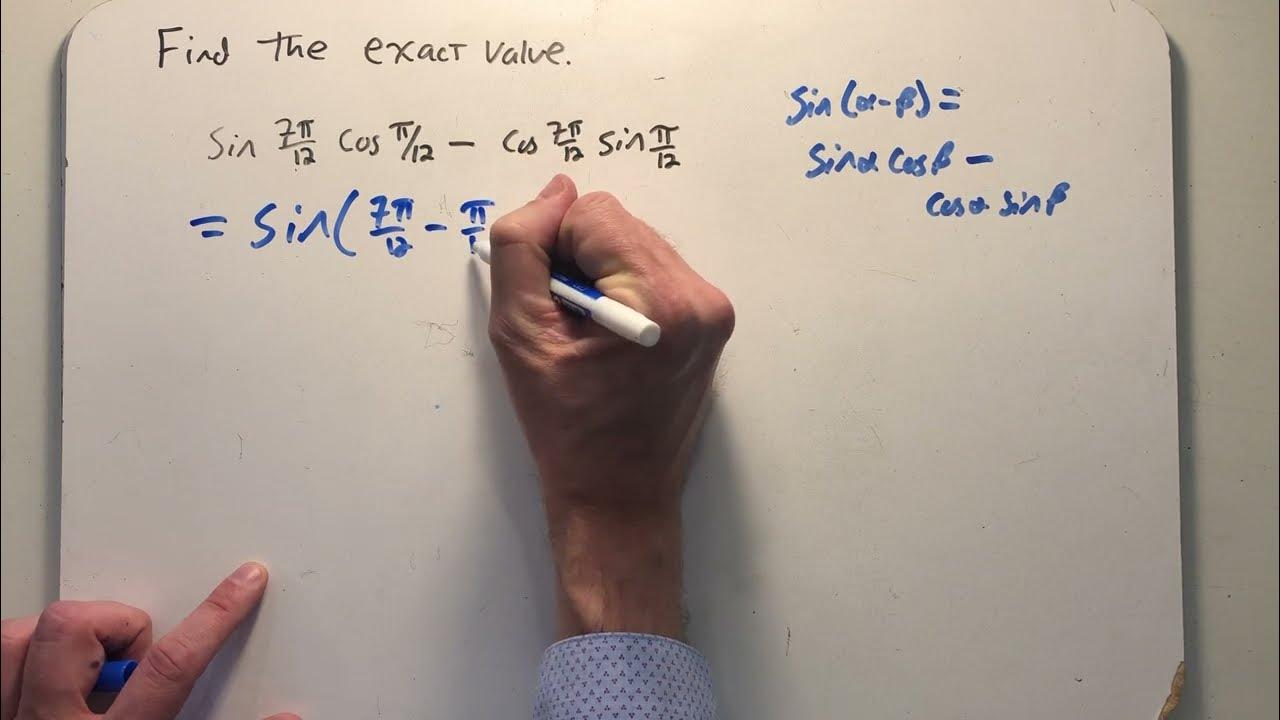 Find the exact value.
sin 7π/12 cos π/12 - cos 7π/12 sin π/12
= sin( 7π/12 - π/1
sin(α-β) =
sinα cosβ -
cosα sinβ